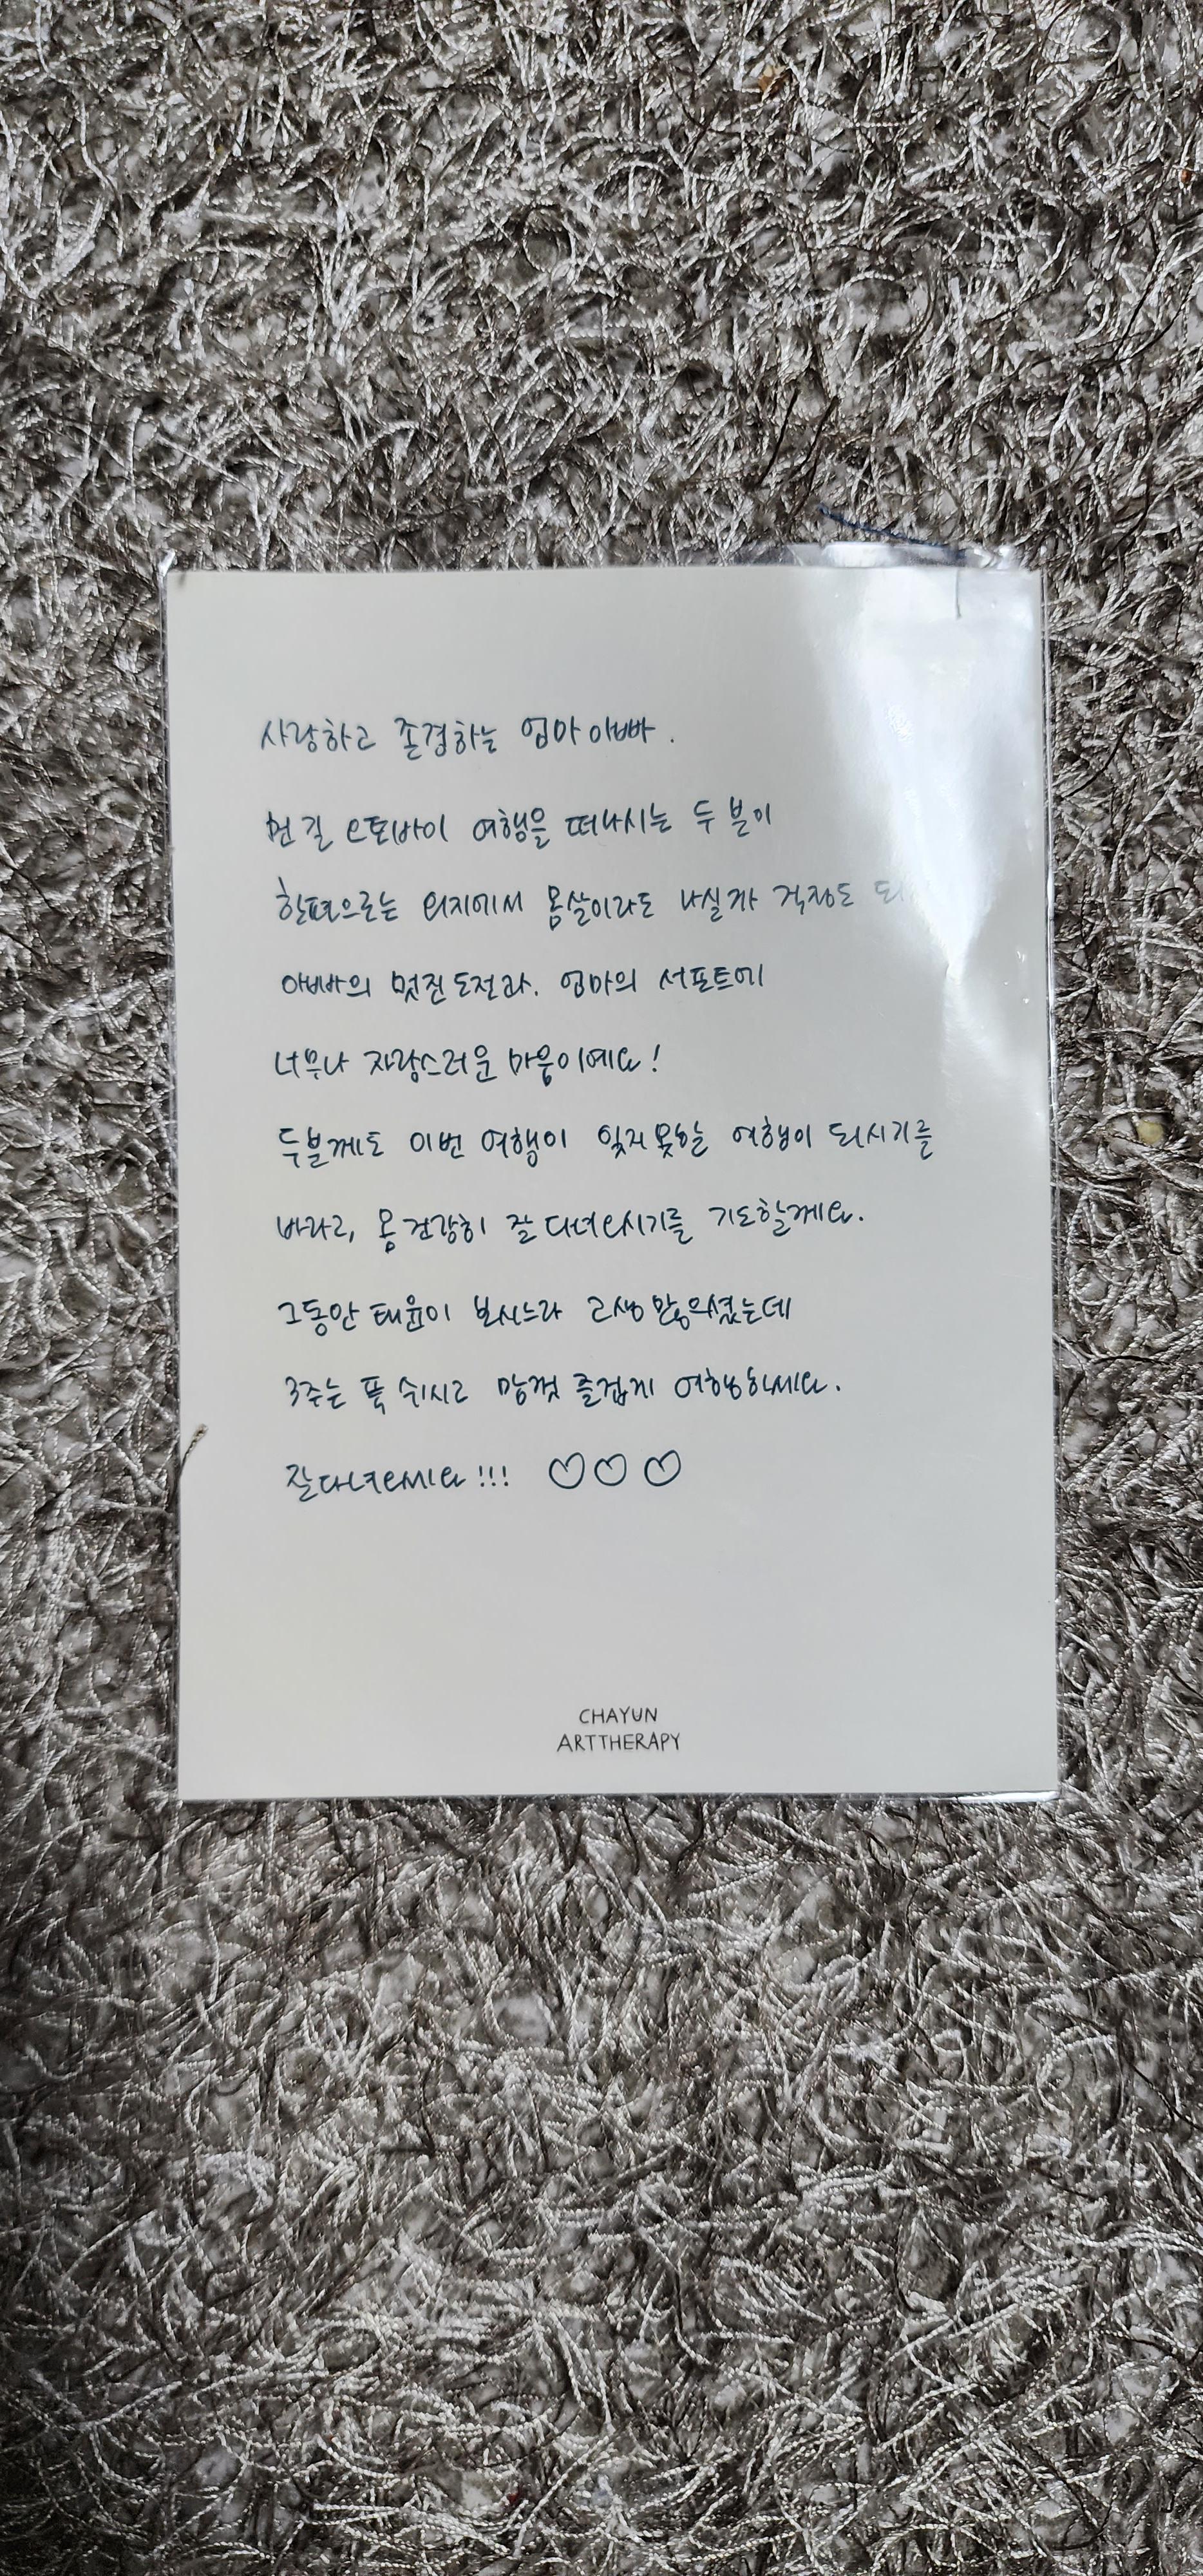 사랑하고 존경하는 엄마 아빠.
먼 길 오토바이 여행을 떠나시는 두 분이
한편으로는 외지에서 몸살이라도 나실까 걱정도
아빠의 멋진 도전과, 엄마의 서포트에
너무나 자랑스러운 마음이예요!
두분께도 이번 여행이 잊지 못할 여행이 되시기를
바라고, 몸 건강히 잘 다녀오시기를 기도할게요.
그동안 태윤이 보시느라 고생 많으셨는데
3주는 푹 쉬시고 맘껏 즐겁게 여행하세요.
잘다녀오세요!!! ♡♡♡
CHAYUN
ARTTHERAPY